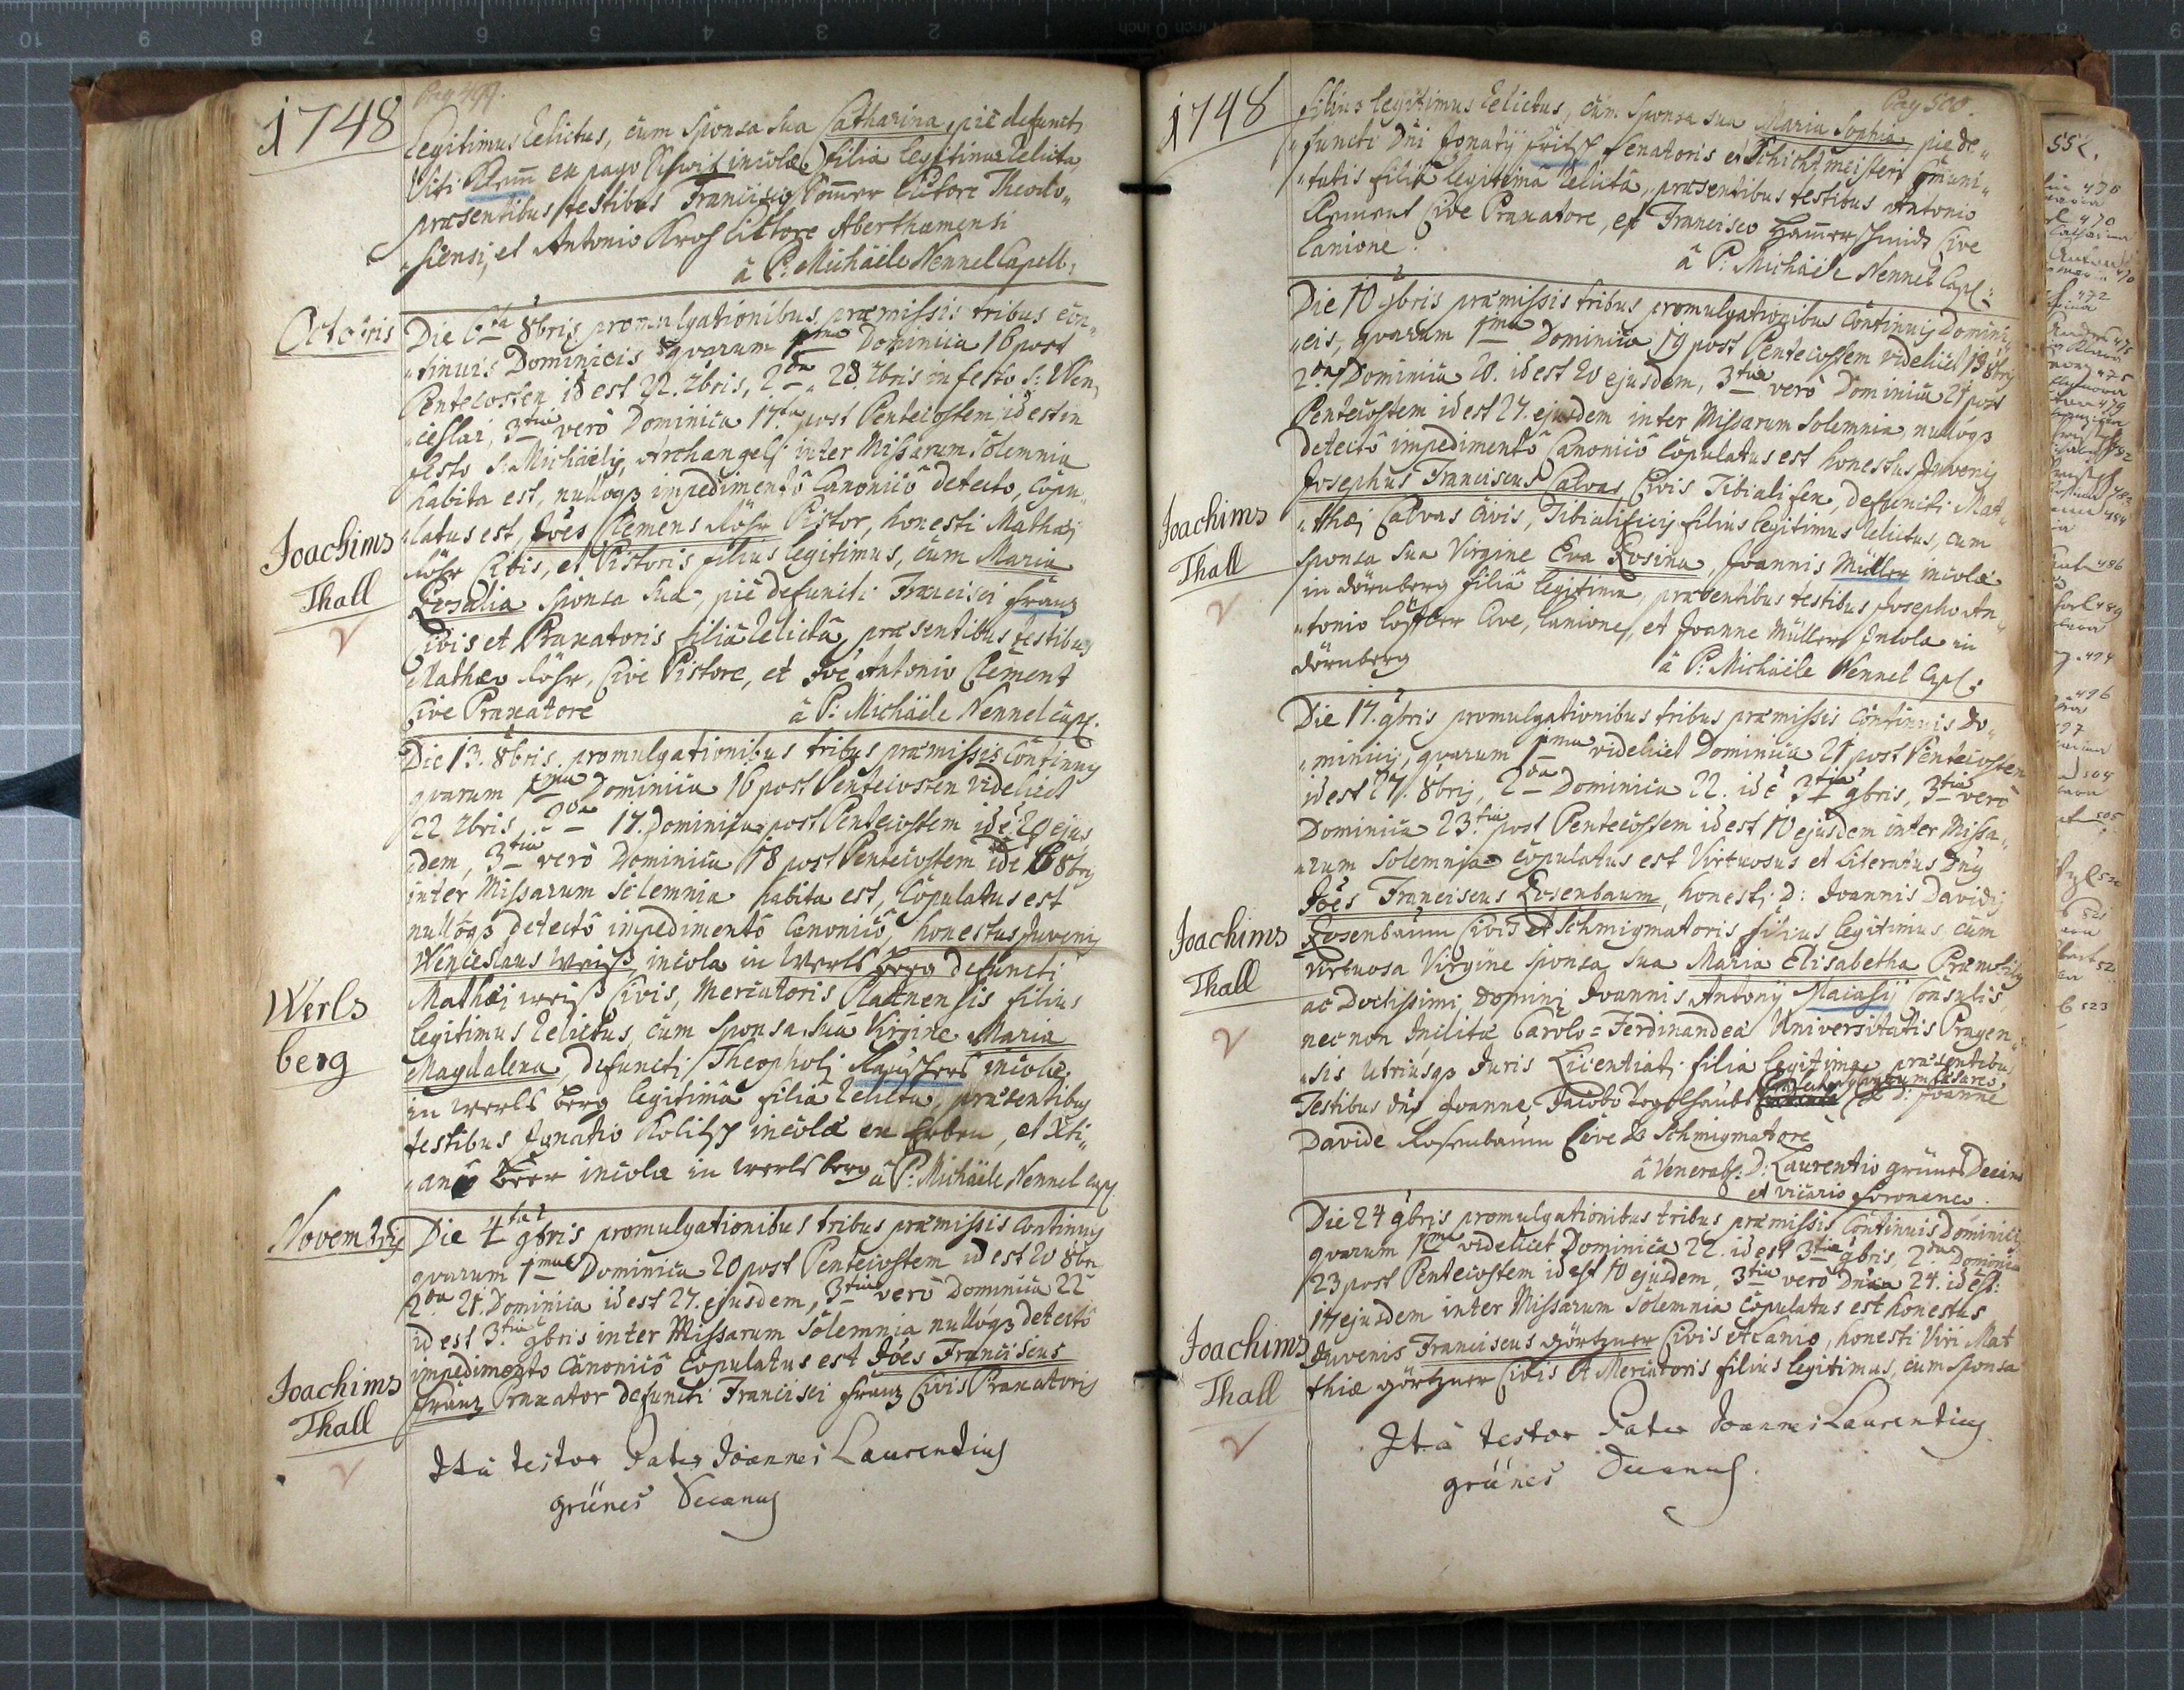 1748
Pag 499.
Legitimus Relictus, cum Sponsa Sua Catharina, pie defuncti
Viti ex pago incolæ filia legitima Relicta,
præsentibus testibus Francisco Lictore Theodo„
„siensi, et Antonio Lictore Aberthamensi
à P: Michäele Nennel Capell:
Octobris
Die 6ta 8bris promulgationibus præmissis tribus con„
„tinuis Dominicis quarum 1ma Dominica 16 post
Pentecosten id est 22. 7bris, 2da 28. 7bris in festo S: Wen„
„ceslai, 3tia verò Dominica 17ta post Pentecostem id est in
festo S: Michäelis Archangeli inter Missarum Solemnia
habita est, nullóqз impedimentô Canonicô detecto, Copu„
Joachims
Thall
„latus est, Jöes Clemens Löhr Pistor, honesti Mathæi
Löhr Civis, et Pistoris filius legitimus, cum Maria
Rosalia Sponsa Sua, pie defuncti Francisci Franz
Civis et Braxatoris filiâ Relictâ, præsentibus testibus
Mathæo Löhr, Cive Pistore, et Jöe Antonio Clement
Cive Braxatore à P: Michäele Nennel Capl.
Die 13. 8bris promulgationibus tribus præmissis Continuis
quarum 1ma Dominica 16 post Pentecosten videlicet
22 7bris, 2da 17. Dominica post Pentecostem id e: 29 ejus
dem, 3tia verò Dominica 18 post Pentecostem id e 6 8bris
inter Missarum Solemnia habita est, Copulatus est
nullóqз detectô impedimentô Canonicô, honestus Juvenis
Werls
berg
Wenceslaus Weiß, incola in Werls berg defuncti
Mathæi Weiß Civis, Mercatoris Platnensis filius
legitimus Relictus, cum Sponsa sua Virgine Maria
Magdalena, defuncti Theophili incolæ
in Werls Berg legitimâ filiâ Relictâ, præsentibus
testibus Ignatio incolâ en et Xti„
„an Beer incola in Werlsberg à P: Michäele Nennel Capl.
Novembris
Die 4ta 9bris promulgationibus tribus præmissis Continuis
quarum 1ma Dominica 20 post Pentecostem id est 20 8bris
2da 21. Dominica id est 27. ejusdem, 3tia verò Dominica 22
id est 3tia 9bris inter Missarum Solemnia nullóqз detectô
impedimento Canonicô Copulatus est Jöes Franciscus
Joachims
Thall
Franz Braxator defuncti Francisci Franz Civis Braxatoris
Ità testor Pater Joannes Laurentius
grünes Decanus
1748
Pag 500.
filius legitimus Relictus, cum Sponsa sua Maria Sophia, pie de„
„functi Dni Ignatij Senatoris et Schichtmeisteri Commu„
„tatis filiâ legitimâ Relictâ, præsentibus testibus Antonio
Clement Cive Braxatore, et Francisco Hammerschmidt Cive
Lanione.
à P: Michäele Nennel Capl:
Die 10 9bris præmissis tribus promulgationibus Continuis Domini„
„cis, quarum 1ma Dominica 19 post Pentecostem videlicet 13 8bris
2da Dominica 20. id est 20 ejusdem, 3tia verò Dominica 21 post
Pentecostem id est 27. ejusdem inter Missarum Solemnia, nullóqз
detectô impedimentô Canonicô Copulatus est honestus Juvenis
Josephus Franciscus Calvas Civis Tibialifex, defuncti Mat„
Joachims
Thall
„thæi Calvas Civis, Tibialificis filius legitimus Relictus, cum
Sponsa sua Virgine Eva Rosina, Joannis Müller incolæ
in dörnberg filiâ legitimâ, præsentibus testibus Josepho An„
„tonio Löffler Cive, Lanione, et Joanne Müller Incola in
dörnberg à P: Michäele Nennel Capl:
Die 17. 9bris promulgationibus tribus præmissis Continuis Do„
„minicis, quarum 1ma videlicet Dominica 21 post Pentecosten
id est 27. 8bris, 2da Dominica 22. id e 3tia 9bris, 3tia verò
Dominica 23.tia post Pentecostem id est 10 ejusdem inter Missa„
„rum Solemnia Copulatus est Virtuosus et Literatus Dnus
Jöes Franciscus Rosenbaum, honesti D: Joannis Davidis
Joachims
Thall
Rosenbaum Civis et Schmigmatoris filius legitimus cum
Virtuosa Virgine Sponsa sua Maria Elisabetha
ac Doctissimi Domini Joannis Antonij Maiasij Consulis
nec non Inclitæ Carolo=Ferdinandeæ Universitatis Pragen„
„sis Utriusqз Juris Licentiati filia legitima præsentibus
Testibus Joanne Jacobo D: Joanne
Davide Rosenbaum Cive et Schmigmatore
à Venerab: D: Laurentio grünes Decano
et Vicario foraneo.
Die 24 9bris promulgationibus tribus præmissis Continuis Dominicis
quarum 1ma videlicet Dominica 22. id est 3tia 9bris, 2da Dominica
23 post Pentecostem id est 10 ejusdem, 3tia verò Dnica 24. id est:
17 ejusdem inter Missarum Solemnia Copulatus est honestus
Joachims
Thall
Juvenis Franciscus görtzner Civis et Lanio, honesti Viri Mat
thiæ görtzner Civis et Mercatoris filius legitimus, cum Sponsa
Ità testor Pater Joannes Laurentius
grünes Decanus.